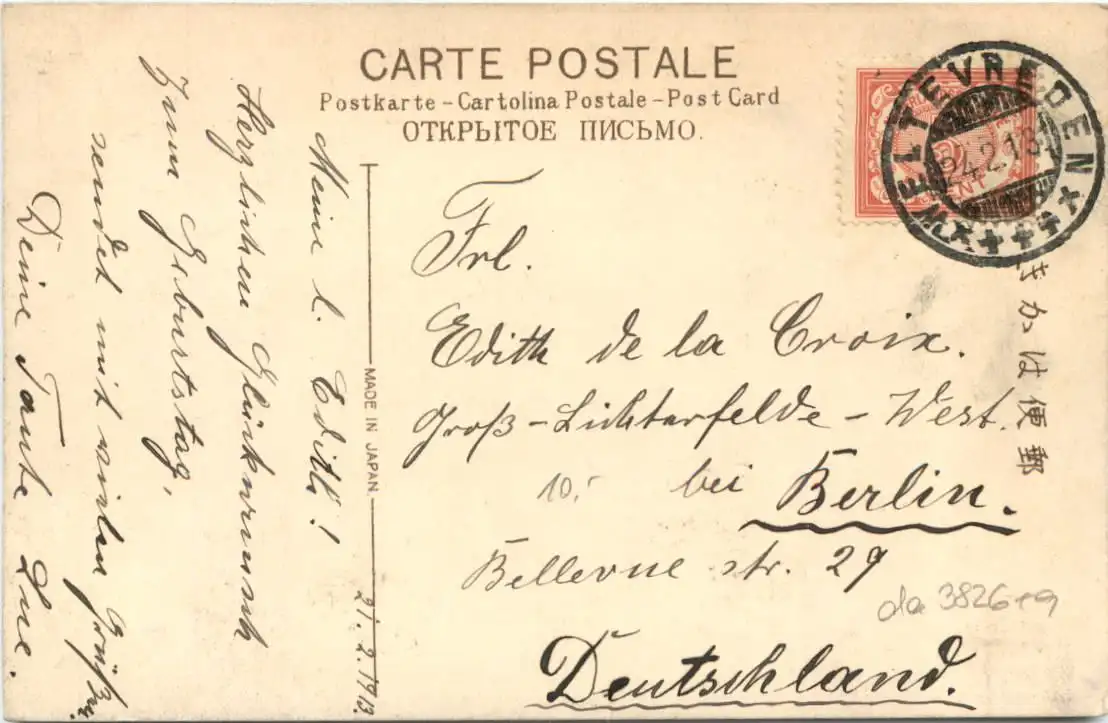 CARTE POSTALE
Postkarte – Cartolina Postale – Post Card
ОТКРЫТОЕ ПИСЬМО.
WELTEVREDEN
24.2.13
CENT
郵便はかき
MADE IN JAPAN.
Frl.
Edith de la Croix.
Groß-Lichterfelde-West.
bei Berlin.
10,-
Bellevue str. 29
Deutschland.
da 3826+a
21.2.1913.
Meine l. Edith!
Herzlichen Glückwunsch
zum Geburtstag,
sendet mit vielen Grüßen
Deine Tante